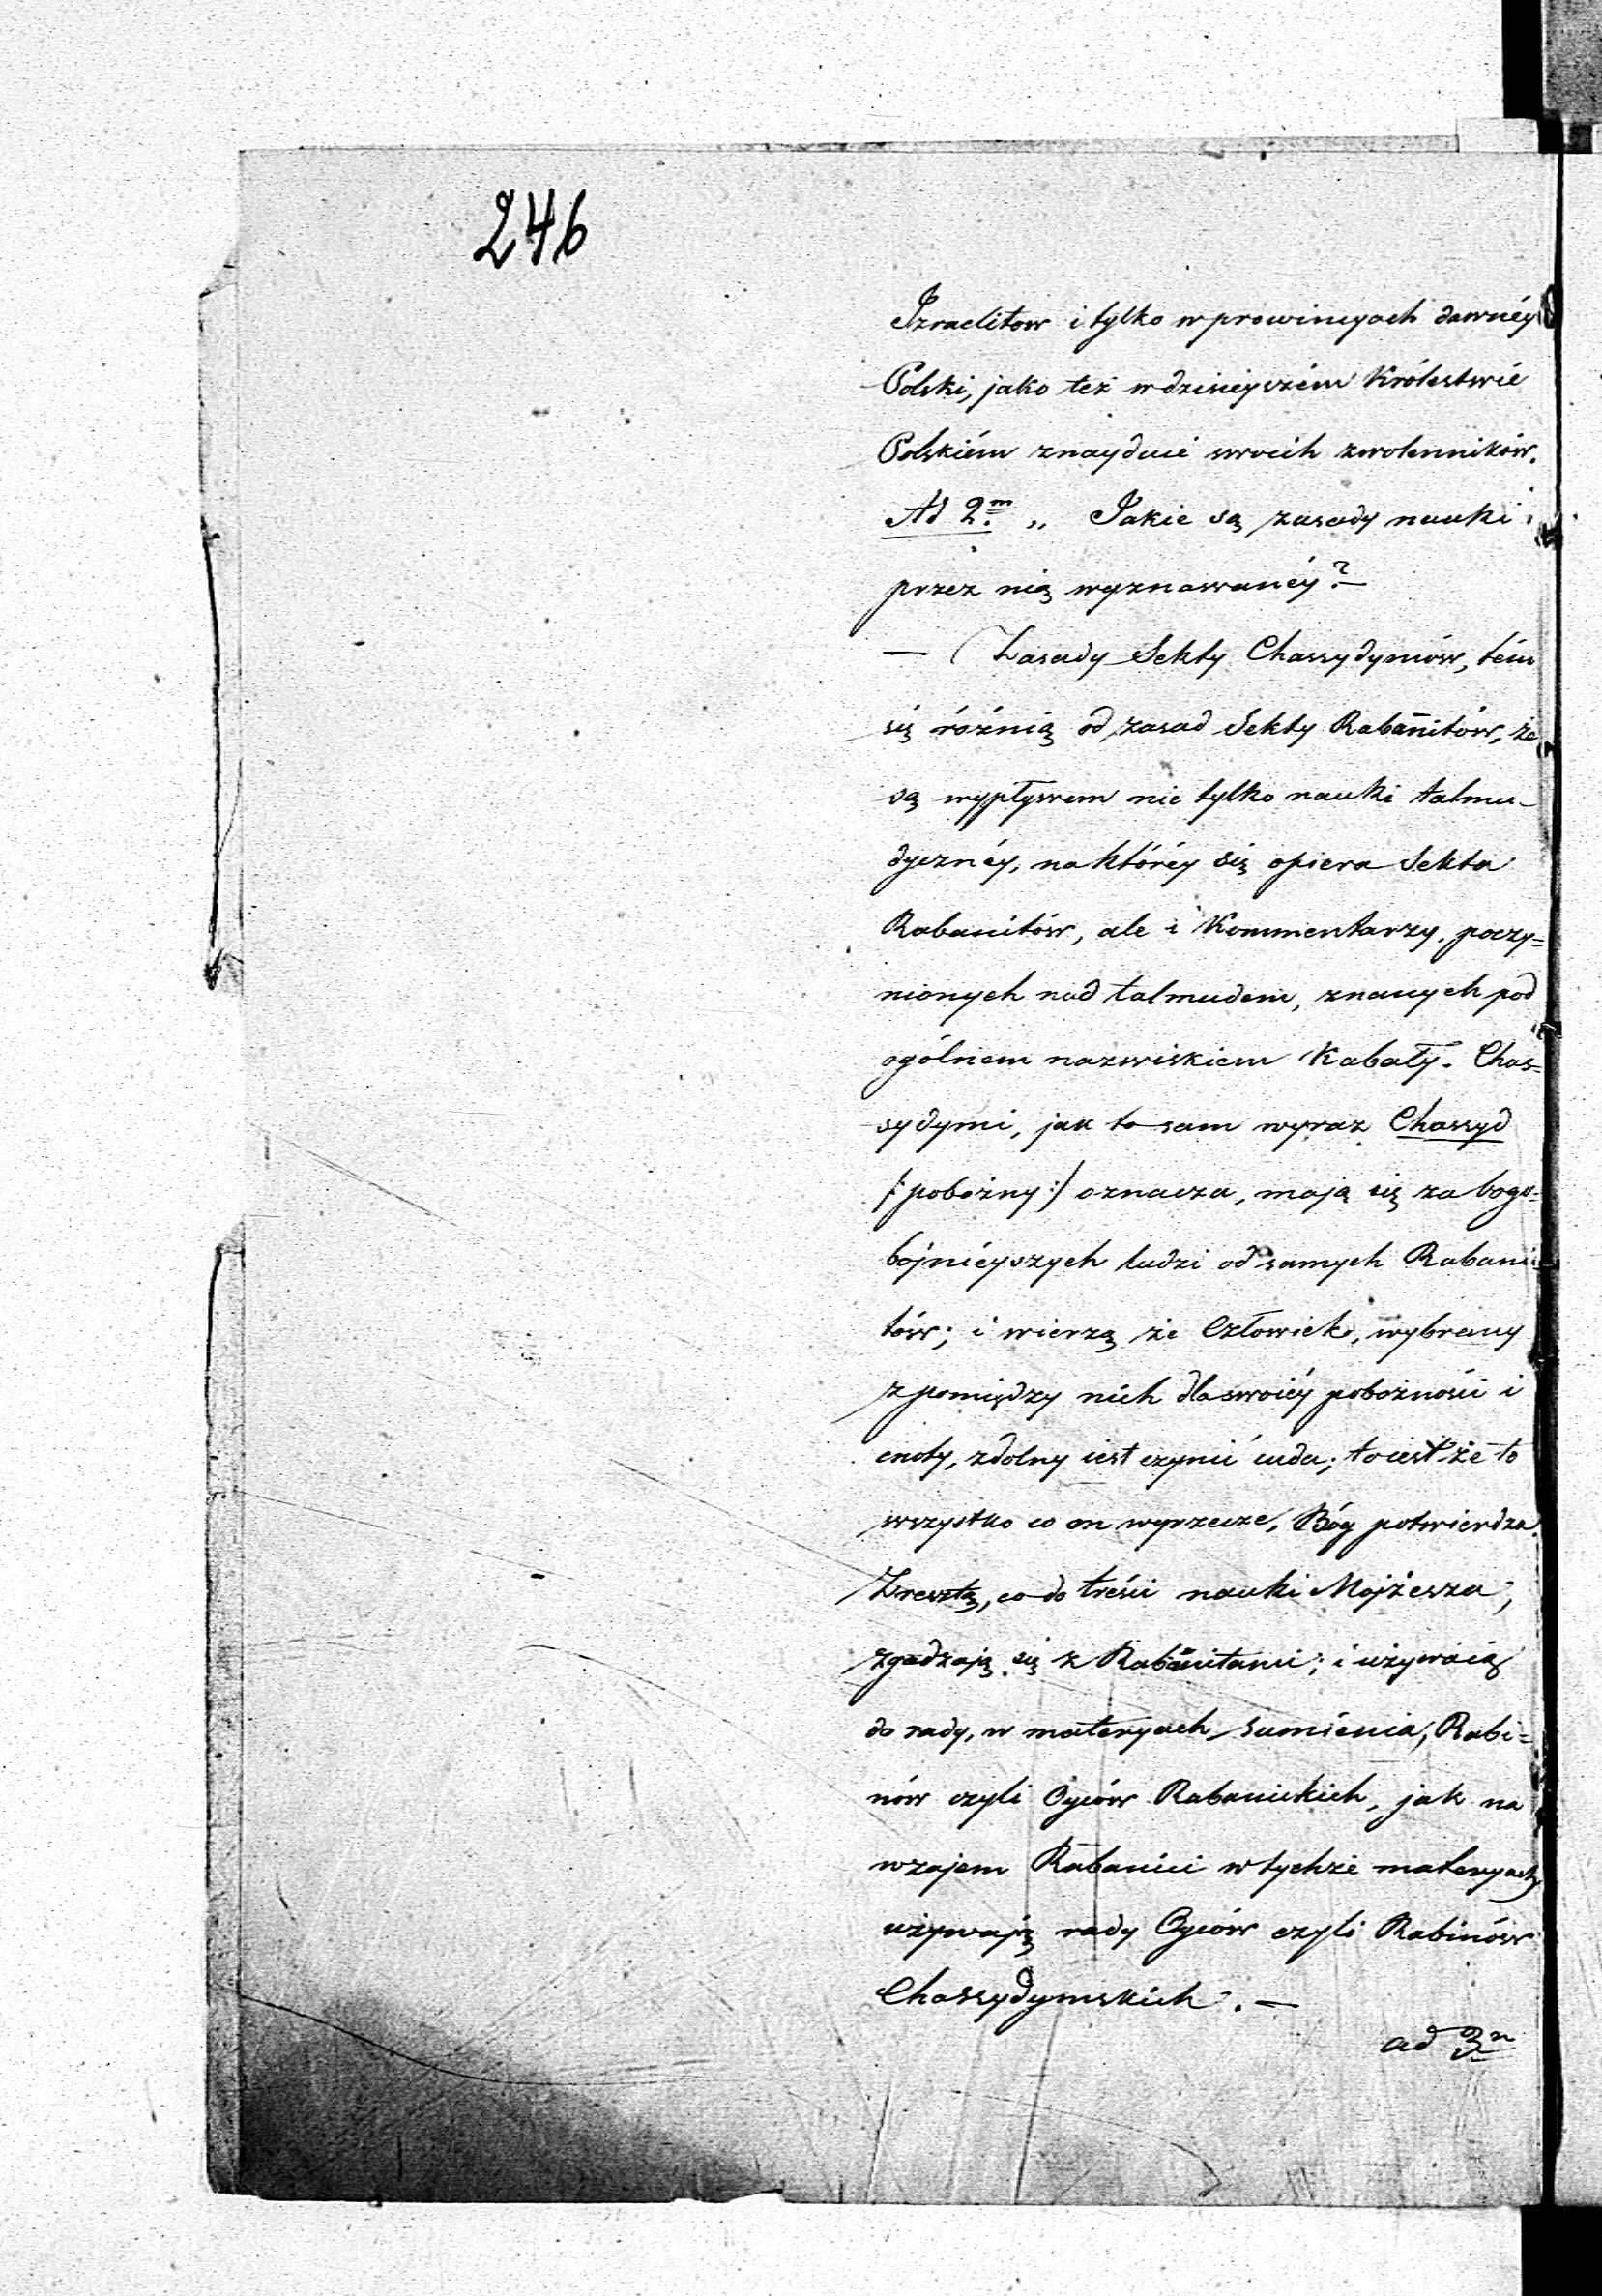 246
Izraelitow i tylko w prowincyach dawnéy
Polski, jako też w dzisieyszém Królestwie
Polskiém znayduie swoich zwolenników.
Ad 2.m „ Jakie są zasady nauki
przez nią wyznawanéy? —
— Zasady Sekty Chassydymów, tém
się różnią od zasad Sekty Rabanitów, że
są wypływem nie tylko nauki talmu-
dycznéy, na któréy się opiera Sekta
Rabanitów, ale i Kommentarzy, poczy=
nionych nad talmudem, znanych pod
ogólnem nazwiskiem Kabały. Chas=
sydymi, jak to sam wyraz Chassyd
/: pobożny :/ oznacza, mają się za bogo=
bojnieyszych ludzi od samych Rabani=
tów; i wierzą że Człowiek, wybrany
z pomiędzy nich dla swoiéy pobożności i
cnoty, zdolny iest czynić cuda; to iest że to
wszystko co on wyrzecze, Bóg potwierdza.
Zresztą, co do treści nauki Mojżesza,
zgadzają się z Rabanitami; i używaią
do rady, w materyach sumienia, Rabi=
nów czyli Oyców Rabanickich, jak na
wzajem Rabanici w tychże materyach
używają rady Oyców czyli Rabinów
Chassydymskich. —
ad 3m